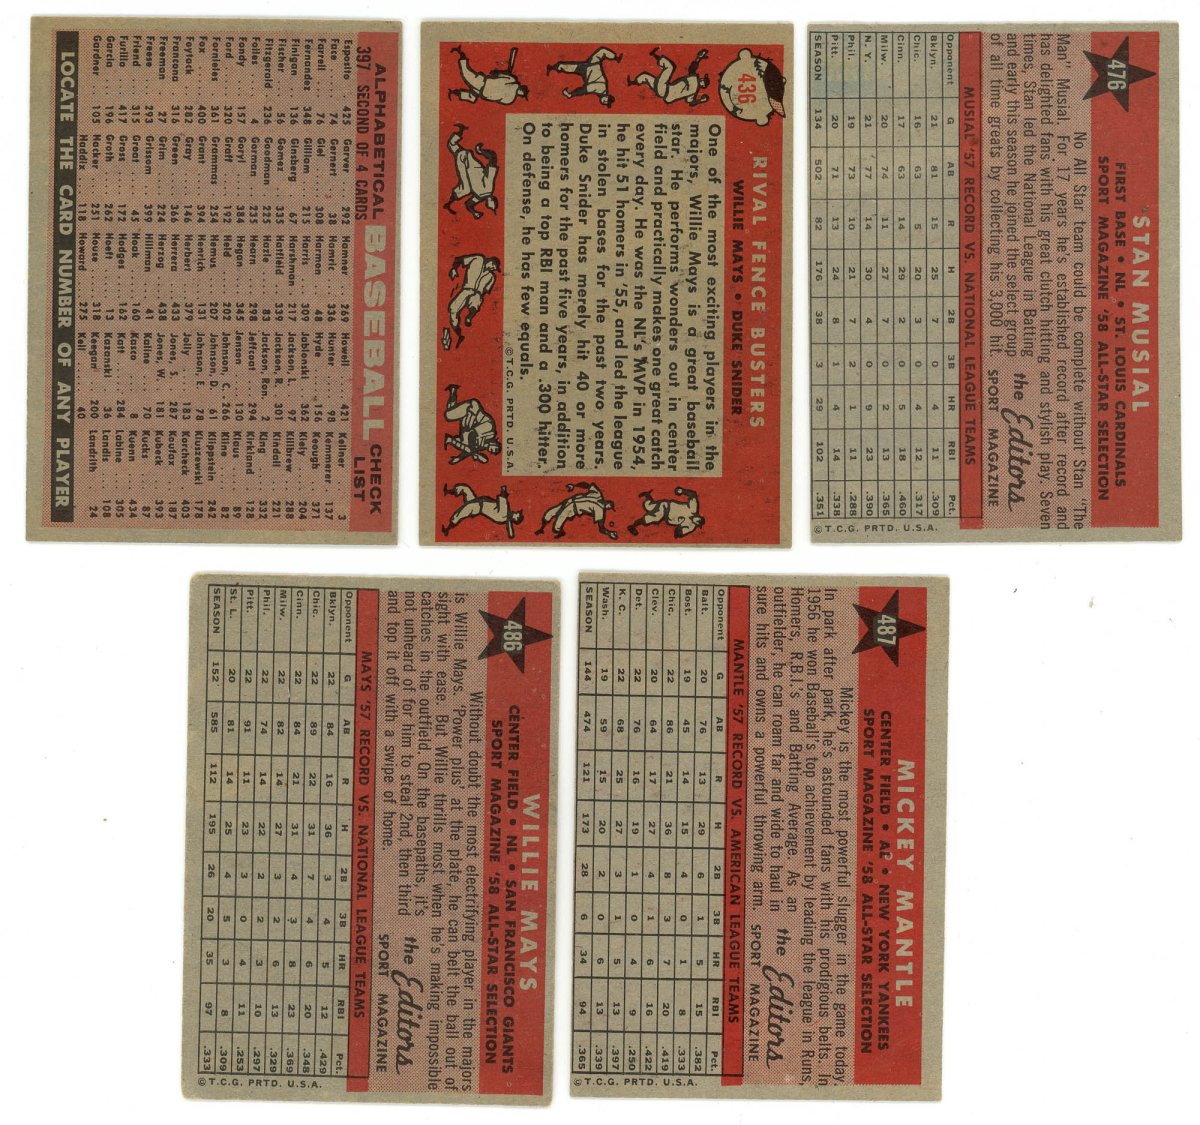 ALPHABETICAL BASEBALL CHECK LIST
397 SECOND OF 4 CARDS
Esposito 425
Face 74
Farrell 76
Fernandez 348
Finigan 136
Fischer 56
Fitzgerald 236
Foiles 4
Fondy 157
Ford 320
Fornieles 361
Fox 400
Foytack 282
Francona 316
Freeman 27
Freese 293
Friend 315
Furillo 417
Garcia 196
Gardner 105
Garver 292
Gernert 38
Giel 308
Gilliam 215
Ginsberg 67
Gomez 335
Goodman 225
Gorman 235
Goryl 384
Graff 192
Grammas 254
Grant 394
Gray 146
Green 366
Grim 224
Grissom 399
Groat 45
Gross 172
Groth 262
Hacker 251
Haddix 118
Hamner 269
Hamric 336
Harmon 48
Harris 309
Harshman 217
Hatfield 339
Hazle 83
Hearn 298
Hegan 345
Held 202
Hemus 207
Henrich 131
Herbert 379
Herrera 433
Herzog 438
Hillman 41
Hoak 160
Hodges 162
Hoeft 13
House 318
Howard 275
Howell 421
Hunter 98
Hyde 156
Jablonski 362
Jackson, L. 97
Jackson, Ran. 301
Jeffcoat 294
Jensen 130
Johnson, C. 266
Johnson, D. 61
Johnson, E. 78
Jolly 183
Jones, S. 287
Jones, W. 181
Kaline 70
Kasco 8
Katt 284
Kazanski 36
Keegan 200
Kell 40
Kellner 3
Kemmerer 137
Keough 371
Kiely 204
Killbrew 288
Kindall 221
King 332
Kirkland 128
Kline 82
Klippstein 242
Kluszewski 178
Korcheck 403
Koufax 187
Kubeck 393
Kucks 87
Kuenn 434
Labine 305
Landis 108
Landrith 24
LOCATE THE CARD NUMBER OF ANY PLAYER
436
RIVAL FENCE BUSTERS
WILLIE MAYS • DUKE SNIDER
One of the most exciting players in the
majors, Willie Mays is a great baseball
star. He performs wonders out in center
field and practically makes one great catch
every day. He was the NL's MVP in 1954,
he hit 51 homers in '55, and led the league
in stolen bases for the past two years.
Duke Snider has merely hit 40 or more
homers for the past five years, in addition
to being a top RBI man and a .300 hitter.
On defense, he has few equals.
©T.C.G. PRTD. U.S.A.
476
STAN MUSIAL
FIRST BASE • NL • ST. LOUIS CARDINALS
SPORT MAGAZINE '58 ALL-STAR SELECTION
No All Star team could be complete without Stan "The
Man" Musial. For 17 years he's established record after record and
has delighted fans with his great clutch hitting and stylish play. Seven
times, Stan led the National League in Batting
and early this season he joined the select group
of all time greats by collecting his 3,000 hit.
the Editors
SPORT MAGAZINE
MUSIAL '57 RECORD VS. NATIONAL LEAGUE TEAMS
Opponent G AB R H 2B 3B HR RBI Pct.
Bklyn. 21 81 15 25 7 0 4 11 .309
Chic. 16 63 5 20 3 0 2 12 .317
Cinn. 17 63 14 29 2 0 5 18 .460
Milw. 20 74 11 27 7 0 4 12 .365
N. Y. 21 77 14 30 4 0 9 23 .390
Phil. 19 73 10 21 7 2 1 12 .288
Pitt. 20 71 13 24 8 1 4 14 .338
SEASON 134 502 82 176 38 3 29 102 .351
©T.C.G. PRTD. U.S.A.
486
WILLIE MAYS
CENTER FIELD • NL • SAN FRANCISCO GIANTS
SPORT MAGAZINE '58 ALL-STAR SELECTION
Without doubt the most electrifying player in the majors
is Willie Mays. 'Power plus' at the plate, he can belt the ball out of
sight with ease. But Willie thrills most when he's making impossible
catches in the outfield. On the basepaths, it's
not unheard of for him to steal 2nd, then third
and top it off with a swipe of home.
the Editors
SPORT MAGAZINE
MAYS '57 RECORD VS. NATIONAL LEAGUE TEAMS
Opponent G AB R H 2B 3B HR RBI Pct.
Bklyn. 22 84 16 36 3 4 5 12 .429
Chic. 22 89 22 31 7 4 6 20 .348
Cinn. 22 84 21 31 4 3 8 23 .369
Milw. 22 82 14 27 2 2 6 13 .329
Phil. 22 74 14 22 3 2 3 10 .297
Pitt. 22 91 11 23 4 0 4 11 .253
St. L. 20 81 14 25 3 5 3 8 .309
SEASON 152 585 112 195 26 20 35 97 .333
©T.C.G. PRTD. U.S.A.
487
MICKEY MANTLE
CENTER FIELD • AL • NEW YORK YANKEES
SPORT MAGAZINE '58 ALL-STAR SELECTION
Mickey is the most powerful slugger in the game today.
In park after park, he's astounded fans with his prodigious belts. In
1956 he won Baseball's top achievement by leading the league in Runs,
Homers, R.B.I.'s and Batting Average. As an
outfielder, he can roam far and wide to haul in
sure hits and owns a powerful throwing arm.
the Editors
SPORT MAGAZINE
MANTLE '57 RECORD VS. AMERICAN LEAGUE TEAMS
Opponent G AB R H 2B 3B HR RBI Pct.
Balt. 20 76 13 29 6 1 5 8 .382
Bost. 19 45 14 15 4 0 1 8 .333
Chic. 22 86 21 36 8 4 7 20 .419
Clev. 20 64 17 27 3 1 6 16 .422
Det. 22 76 16 19 1 0 4 9 .250
K. C. 22 68 25 27 4 3 5 13 .397
Wash. 19 59 15 20 2 0 6 13 .339
SEASON 144 474 121 173 28 6 34 94 .365
©T.C.G. PRTD. U.S.A.